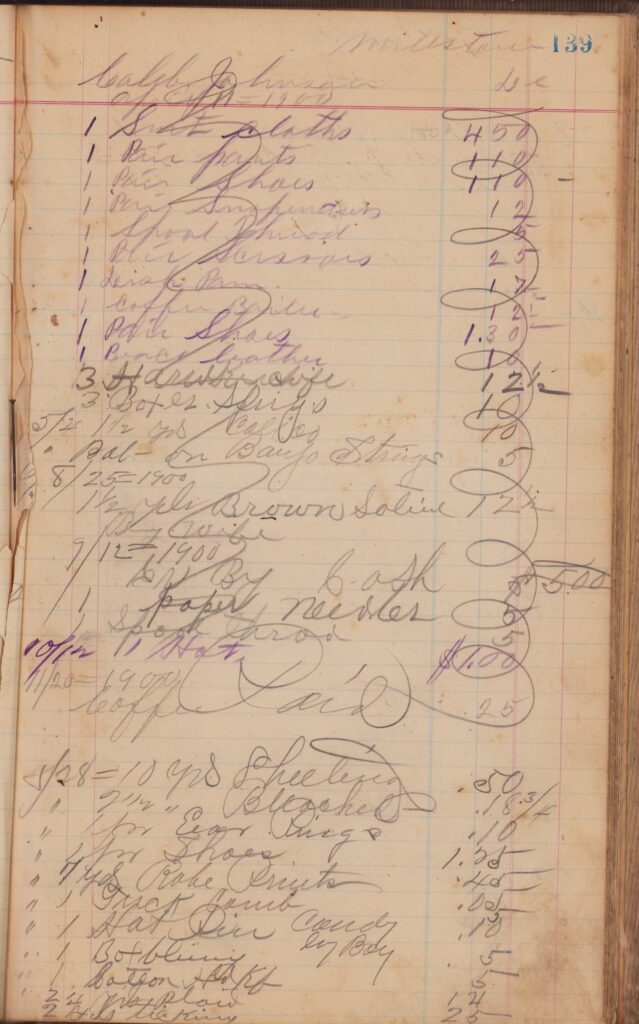 Millstone 139
Caleb Johnson Dr
1900
1 Suit cloths 4 50
1 Pair pants 1 10
1 Pair Shoes 1 10
1 Pair Suspenders 12
1 Spool Thread 5
1 Pair Scissors 25
1 Dish Pan 17
1 Coffee Boiler 12
1 Pair Shoes 1.30
1 leather 10
3 wife 12½
3 Boxes 10
5/2 1½ yds Calico 10
" Bal- on Banjo Strings 5
8/25=1900
1½ yds Brown Satine 12½
By wife
9/12=1900
Cr By Cash $ 5.00
1 paper needles 5
1 Spool thread 5
10/12 1 Hat $1.00
11/20=1900
Coffee 25
Paid
5/28=10 yds Sheeting .50
" 2½ " Bleached .18 3/4
" 1 pr Ear Rings .10
" 1 pr Shoes 1.25
" 7 yds Robe Prints .45
" 1 Tuck Comb .05
" 1 Hat Pin Candy by Boy .10
" 1 Box bluing 5
" 1 Cotton Hdkf 5
2 Plow 14
2 yds ticking 25